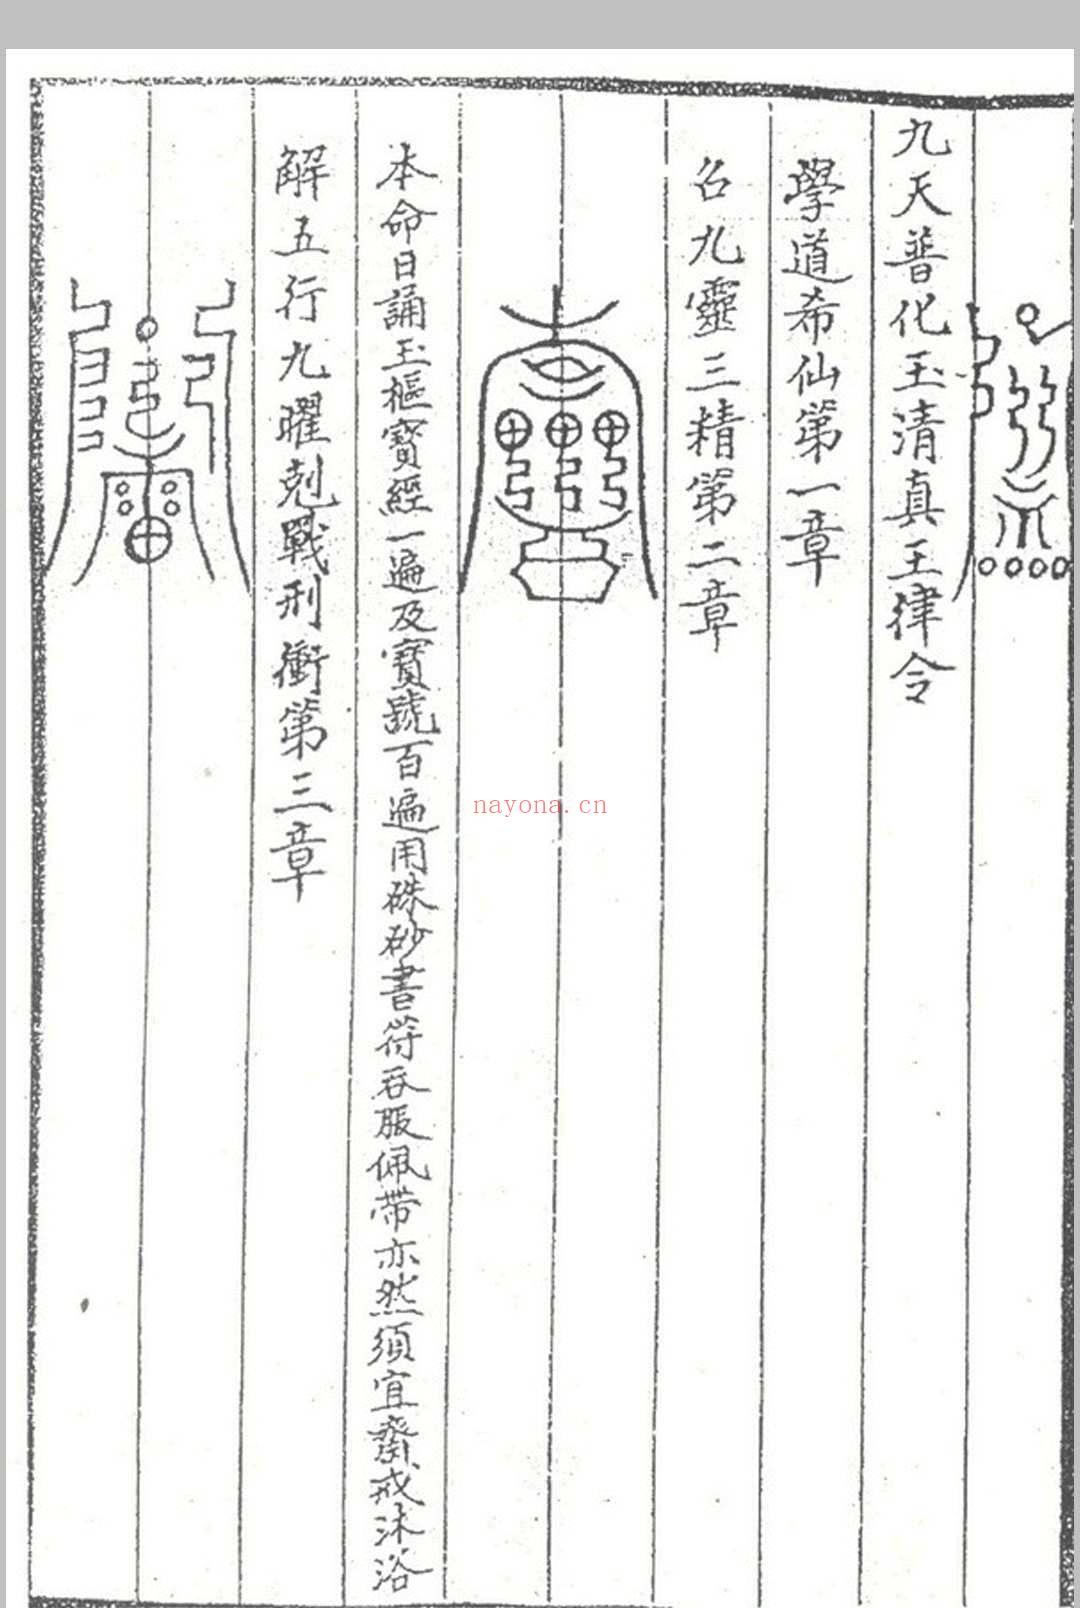 九天普化玉清真王律令
學道希仙第一章
召九靈三精第二章
本命日誦玉樞寶經一遍及寶號百遍用硃砂書符吞服佩帶亦然須宜齋戒沐浴
解五行九曜剋戰刑衝第三章
nayona.cn